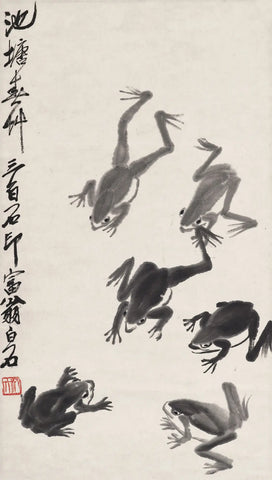 池塘春草三百石印富翁白石